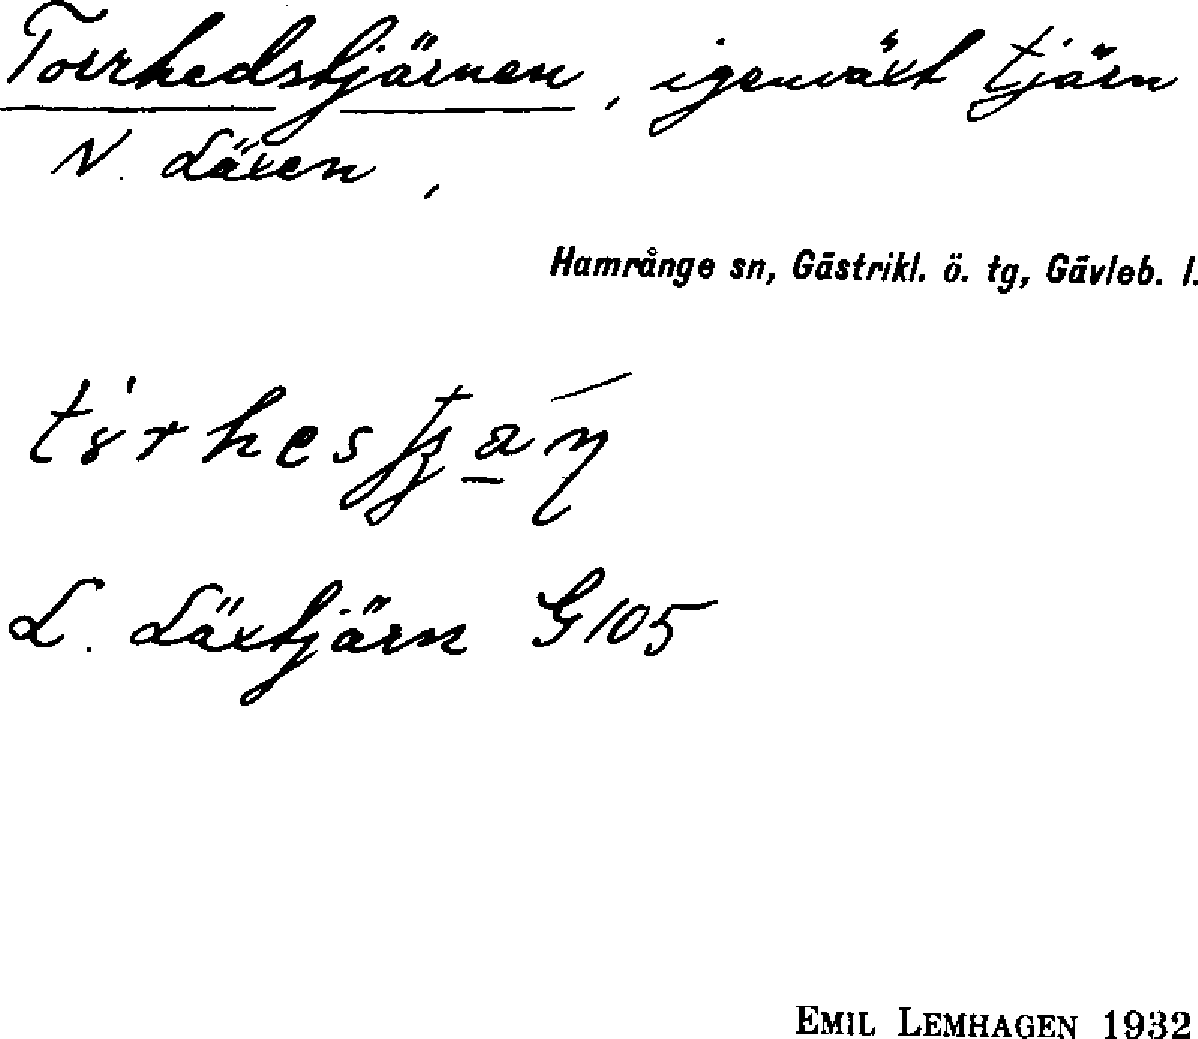 Torrhedstjärnen, igenväxt tjärn
N. Läxen,
Hamrånge sn, Gästrikl. ö. tg, Gävleb. l.
L. Läxtjärn G105
EMIL LEMHAGEN 1932